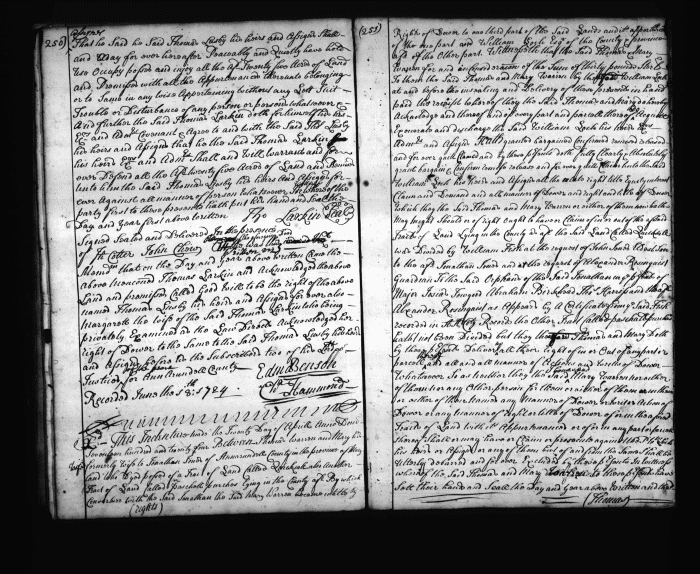 250)
That he Said he Said Thomas Lusby his heirs and Assigns Shall
and May for ever hereafter Peaceably and Quietly have hold
Use Occupy possess and enjoy all the afd Twenty five Acres of Land
and Premises with all the Appurtenances thereunto belonging
or to Same in any wise Appertaining without any Lett Suit
Trouble or Disturbance of any person or persons whatsoever
And further the Said Thomas Larkin doth for himself his heirs
Exrs and Admrs Covenant & Agree to and with the Said Thos Lusby
his heirs and Assigns that he the Said Thomas Larkin
his heirs Exrs and Admrs Shall and Will warrant and for
ever Defend all the afd twenty five acres of Land and Premises
unto him the Said Thomas Lusby his heirs and Assigns for
ever against all manner of persons whatsoever In witness the
party first to these presents hath put his hand and Seal the
Day and Year first above written Tho Larkin Seal
Signed Sealed and Delivered In the presence
of Jn Cotter John Clow
that on the Day and Year above written Came the
above mencioned Thomas Larkin and Acknowledged the above
Land and premises Called God wills to be the right of the above
named Thomas Lusby his heirs and Assigns for ever also
Margarett the wife of the Said Thomas Larkin who being
privately Examined as the Law Directs Acknowledged her
right of Dower to the Same to the Said Thomas Lusby his heirs
and Assigns before the Subscribers two of his
Justices for Ann Arundell County
Edmd Benson
Chs Hammond
Recorded June the 13th 1724
This Indenture made the Twenty Day of April Anno Domi
Seventeen hundred and twenty four Between Thomas Warren and Mary his
formerly wife to Jonathan Jones of Annarundell County in the province of Mary
land Dec'd possed of a Tract of Land Called Quicksale also another
Tract of Land Called pascholls purchas Lying in the County afd By which
with the Said Jonathan the Said Mary Warren became intitled to
(rights)
(251)
Right of Dower to one third part of the Said Lands and its appurtenances
of the one part and William Lock Esqr of the County & province
afd of the Other part Witnesseth that the Said Thomas & Mary
Warren for and in consideration of the Sum of thirty pounds Ster.
To them the Said Thomas and Mary Warren by the Said William Lock
at and before the insealing and Delivery of these presents in hand
paid the receipt whereof they the Said Thomas and Mary do hereby
Acknowledge and thereof and of every part and parcell thereof Acquitt
Exonerate and discharge the Said William Lock his heirs Exrs
Admrs and Assigns Have granted bargained Confirmed remised released
and for ever quitt Claimed and by these presents doth fully Clearly & Absolutely
grant bargain Confirm remise release and for ever quitt Claim unto the Said
William Lock his heirs and Assigns all the estate right title
Claim and Demand and all manner of Dower and right and title of Dower
Which they the Said Thomas and Mary Warren or either of them now hath
May might Should or of right ought to have or Claim of in or out of the afsd
Tracts of Land Lying in the County as afd the Said Land Called Quicksale
was Divided by William Fisk at the request of John Jones eldest Son
to the afd Jonathan Jones and at the request of Alexander Rosengrist
Guardian To the Said Orphans of the Said Jonathan and
Major Josias Towgood Abraham Birkhead Thos Harris and the sd
Alexander Rosengrist as Appears by a Certificate from Said Fisk
recorded in AA County Records the Other Tract called pascholls purchas
hath not been Divided but they the Said Thomas and Mary Doth
by these presents Deliver all their right of in or Out of any part or
parcell and all and all manner of Dower and right and title of Dower
Whatsoever So as neither they the Said Mary Warren nor either
of them nor any Other person for them or either of them or them
or either of their Names any Manner of Dower or Writ or Action of
Dower or any manner of right or title of Dower of or in the afsd
Tracts of Land with its Appurtenances or of or in any part or parcell
thereof Shall or may have or Claim or presecute against the Wm Lock
his heirs or Assigns or any of them but of and from the Same Shall be
Utterly debarred and for ever Excluded by these presents In witness
whereof the Said Thomas and Mary Warren to these presents have
Sett their hands and Seals the Day and Year above written and that
(Thomas)